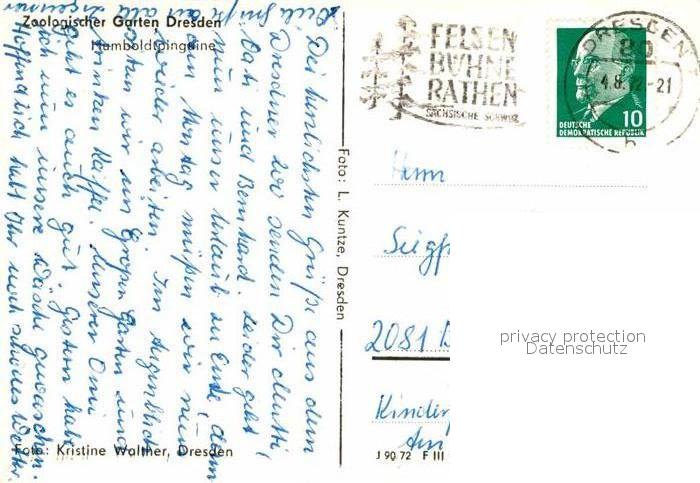 Zoologischer Garten Dresden
Humboldtpinguine
Die herzlichsten Grüße aus dem
Dresdner Zoo senden Dir Mutti,
Kati und Bernhard. Leider geht
nun unser Urlaub zu Ende, denn
am Montag müßen wir nun
wieder arbeiten. Im Augenblick
wir im Großen Garten und
trinken Kaffee. Unserer Omi
geht es auch gut. Gestern habe
ich nun unsere Wäsche gewaschen.
Hoffentlich habt Ihr noch schönes Wetter.
Foto: Kristine Walther, Dresden
Foto: L. Kuntze, Dresden
FELSEN
BÜHNE
RATHEN
SÄCHSISCHE SCHWEIZ
DRESDEN
80
4.8.72-21
h
DEUTSCHE
DEMOKRATISCHE REPUBLIK
10
Herrn
Siegf
2081
Kinder
J 90 72 F III
privacy protection
Datenschutz